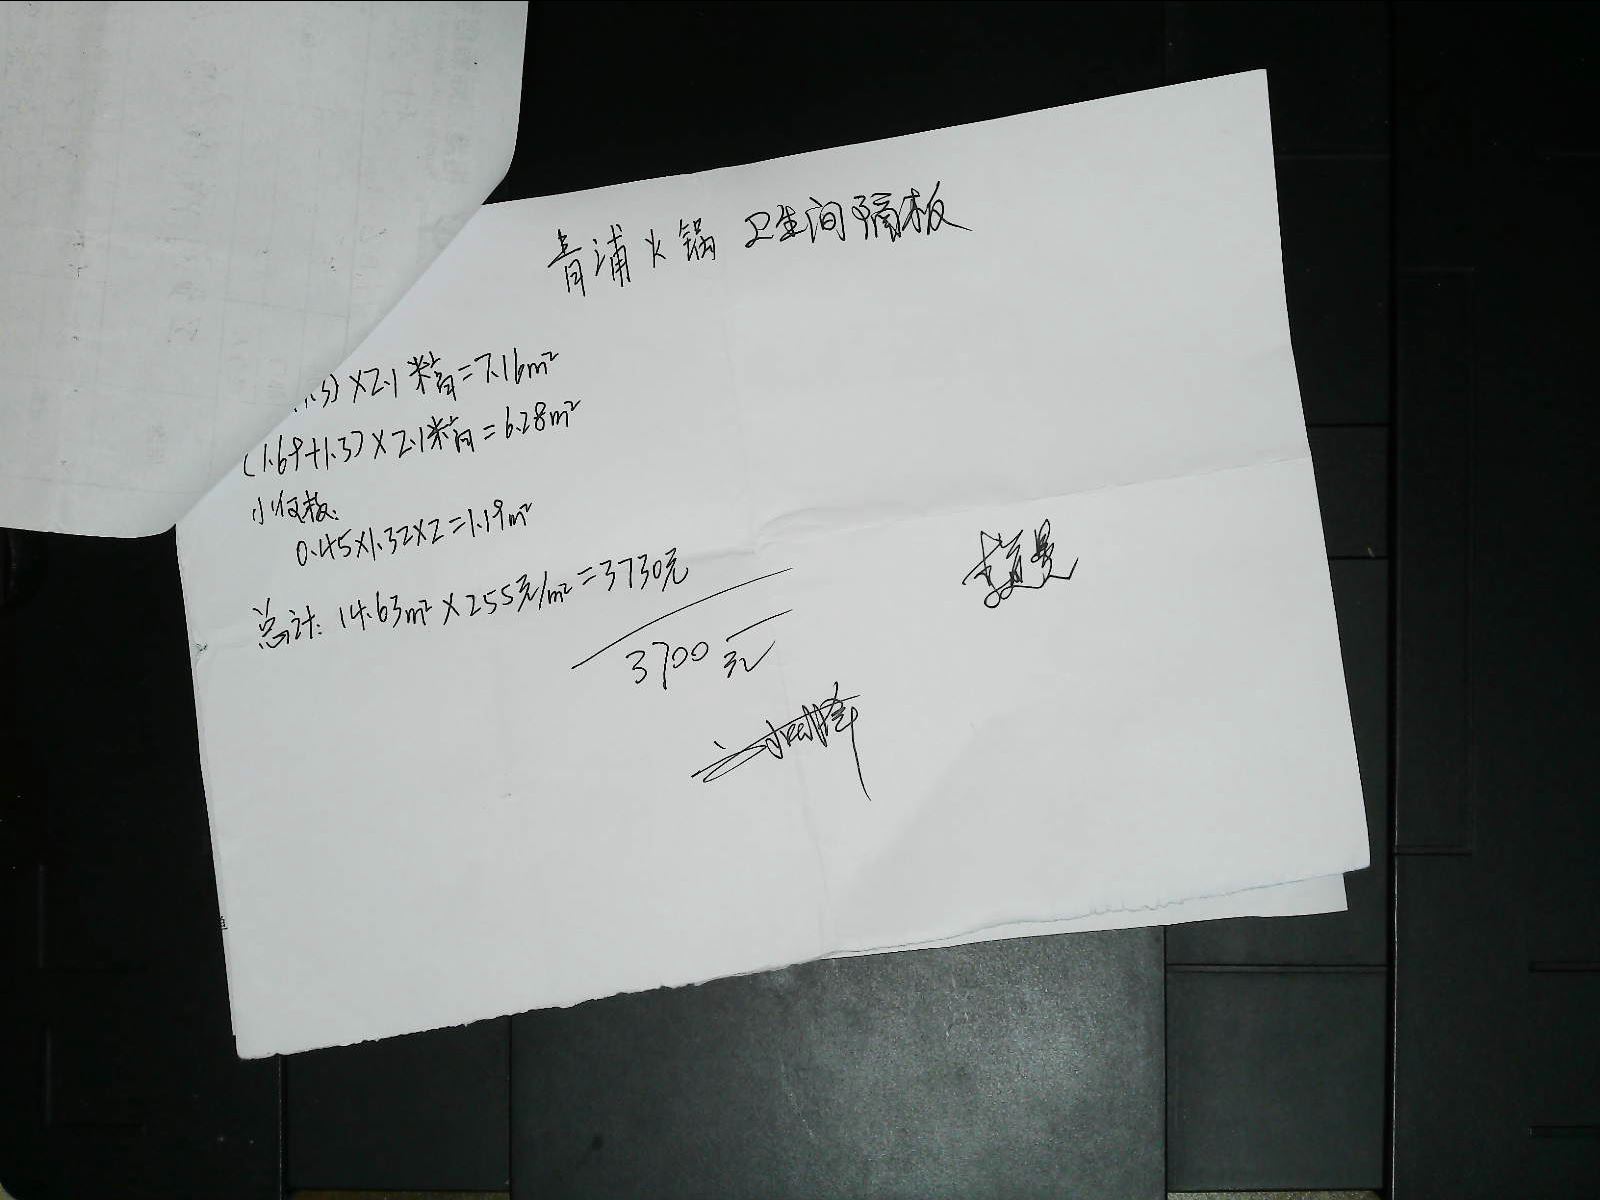 青浦火锅 卫生间隔板
1.3)×2.1米高=7.16m²
(1.69+1.3)×2.1米高=6.28m²
小仅板:
0.45×1.32×2=1.19m²
总计: 14.63m²×255元/m²=3730元
3700元